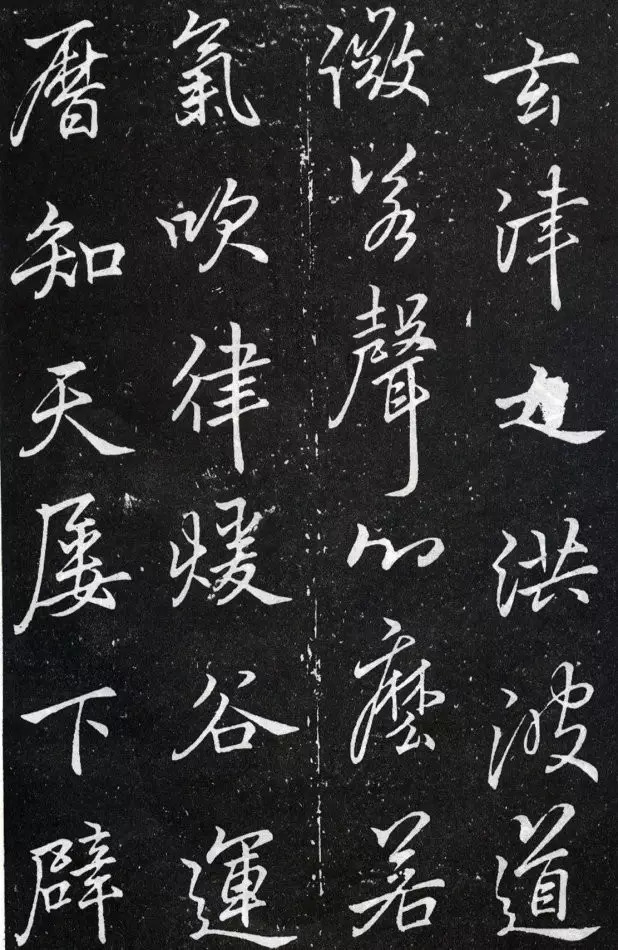 玄津之洪波道
微聲麼若
氣吹律煖谷運
曆知天屢下辟